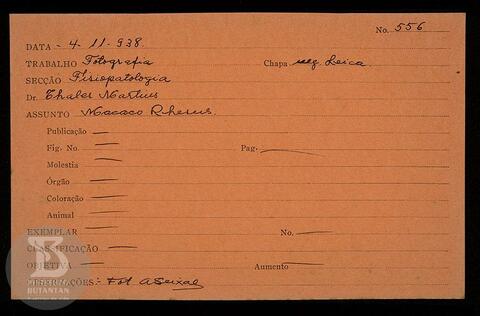 No. 556
DATA - 4-11-938.
TRABALHO Fotografia Chapa neg Leica.
SECÇÃO Fisiopatologia
Dr. Thales Martins
ASSUNTO Macaco Rhesus.
Publicação —
Fig. No. — Pag. —
Molestia —
Órgão —
Coloração —
Animal —
EXEMPLAR — No. —
CLASSIFICAÇÃO —
OBJETIVA — Aumento —
OBSERVAÇÕES:- Fot. A Seixas
BUTANTAN